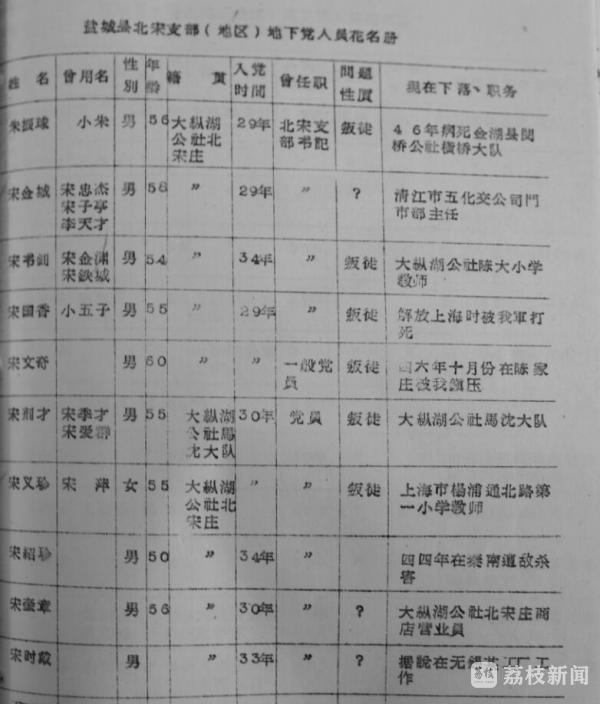 盐城县北宋支部（地区）地下党人员花名册
姓名 曾用名 性别 年龄 籍贯 入党时间 曾任职 问题性质 现在下落、职务
朱振球 小米 男 56 大纵湖公社北宋庄 29年 北宋支部书记 叛徒 46年病死金湖县闵桥公社横桥大队
宋金城 宋忠杰 宋子亭 李天才 男 56 〃 29年 〃 ? 清江市五化交公司門市部主任
宋书钊 宋金渊 宋鉄城 男 54 〃 34年 〃 叛徒 大纵湖公社陈大小学教师
宋国香 小五子 男 55 〃 29年 〃 叛徒 解放上海时被我軍打死
宋文奇 男 60 〃 〃 一般党員 叛徒 四六年十月份在陈家庄被我鎮压
宋荆才 宋季才 宋爱群 男 55 大纵湖公社馬沈大队 30年 党员 叛徒 大纵湖公社馬沈大队
宋又珍 宋萍 女 55 大纵湖公社北宋庄 〃 〃 叛徒 上海市楊浦通北路第一小学教师
宋紹珍 男 50 〃 34年 〃 四四年在秦南遭敌杀害
宋奎章 男 56 〃 30年 〃 ? 大纵湖公社北宋庄商店营业員
宋时戴 男 〃 33年 〃 ? 据説在无锡 工作
荔枝 荔枝新闻